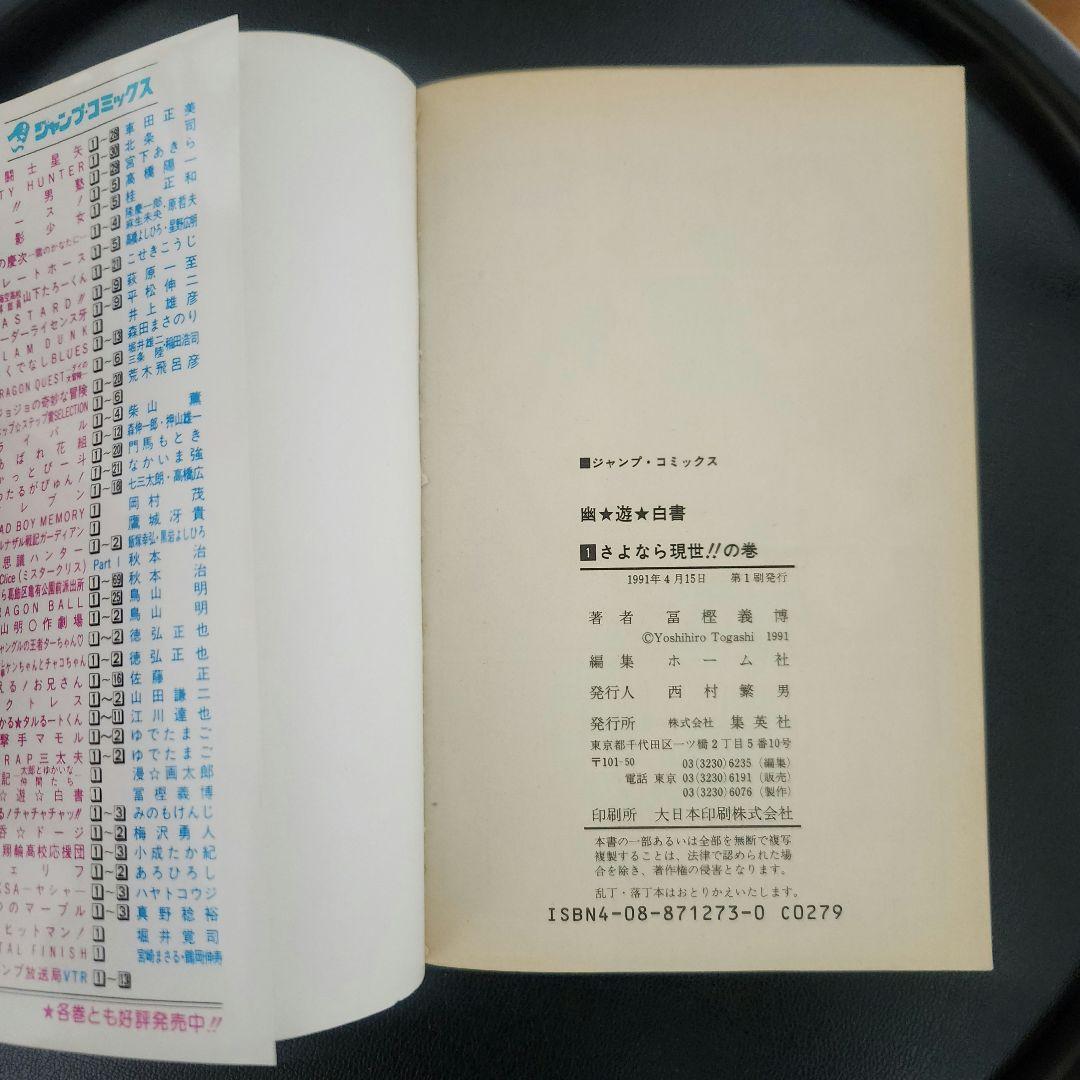 ジャンプ・コミックス
闘士星矢 1～28 車田正美
TY HUNTER 1～30 北条司
!!男塾 1～28 宮下あきら
ース! 1～5 高橋陽一
影少女 1～5 桂正和
の慶次―雲のかなたに― 1～4 隆慶一郎・原哲夫 麻生未央
レートホース 1～5 高橋よしひろ・星野広明
山下たろーくん 1～21 こせきこうじ
ASTARD!! 1～9 萩原一至
ーダーライセンス牙 1～9 平松伸二
LAM DUNK 1 井上雄彦
くでなしBLUES 1～13 森田まさのり
RAGON QUEST―ダイの大冒険― 1～6 堀井雄二・稲田浩司 三条陸
ジョジョの奇妙な冒険 1～20 荒木飛呂彦
ップ☆ステップ賞SELECTION 1～6
ライバル 1～4 柴山薫
あばれ花組 1～12 森伸一郎・押山雄一
かっとび一斗 1～20 門馬もとき
わたるがぴゅん! 1～21 なかいま強
レブン 1～18 七三太郎・高橋広
AD BOY MEMORY 1 岡村茂
ルナザル戦記ガーディアン 1 鷹城冴貴
思議ハンター 1～2 飯塚幸弘・黒岩よしひろ
Clice(ミスタークリス) Part I 秋本治
ら葛飾区亀有公園前派出所 1～69 秋本治
RAGON BALL 1～25 鳥山明
山明〇作劇場 1～2 鳥山明
ャングルの王者ターちゃん♡ 1～2 徳弘正也
シケンちゃんとチャコちゃん 1～2 徳弘正也
える!お兄さん 1～16 佐藤正
クトレス 1～2 山田謙二
かる★タルるートくん 1～11 江川達也
撃手マモル 1～2 ゆでたまご
RAP三太夫 1～2 ゆでたまご
記―太郎とゆかいな仲間たち― 1 漫☆画太郎
☆遊☆白書 1 冨樫義博
る!チャチャチャッ!! 1～3 みのもけんじ
呑☆ドージ 1～2 梅沢勇人
翔輪高校応援団 1～3 小成たか紀
ェリフ 1～2 あろひろし
KSA―ヤシャ― 1～3 ハヤトコウジ
のマーブル 1～3 真野稔裕
ヒットマン! 1 堀井覚司
TAL FINISH 1 宮崎まさる・鶴岡伸寿
ンプ放送局VTR 1～13
★各巻とも好評発売中!!
■ジャンプ・コミックス
幽★遊★白書
1さよなら現世!!の巻
1991年4月15日 第1刷発行
著者 冨樫義博
©Yoshihiro Togashi 1991
編集 ホーム社
発行人 西村繁男
発行所 株式会社 集英社
東京都千代田区一ツ橋2丁目5番10号
〒101-50 03(3230)6235(編集)
電話 東京 03(3230)6191(販売)
03(3230)6076(製作)
印刷所 大日本印刷株式会社
本書の一部あるいは全部を無断で複写
複製することは、法律で認められた場
合を除き、著作権の侵害となります。
乱丁・落丁本はおとりかえいたします。
ISBN4-08-871273-0 C0279